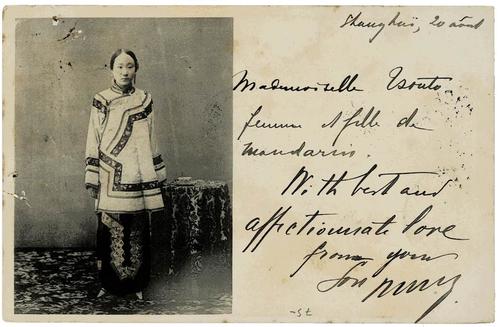 Shanghaï, 20 août
Mademoiselle
femme et fille de
mandarin.
With best and
affectionate love
from your
Son